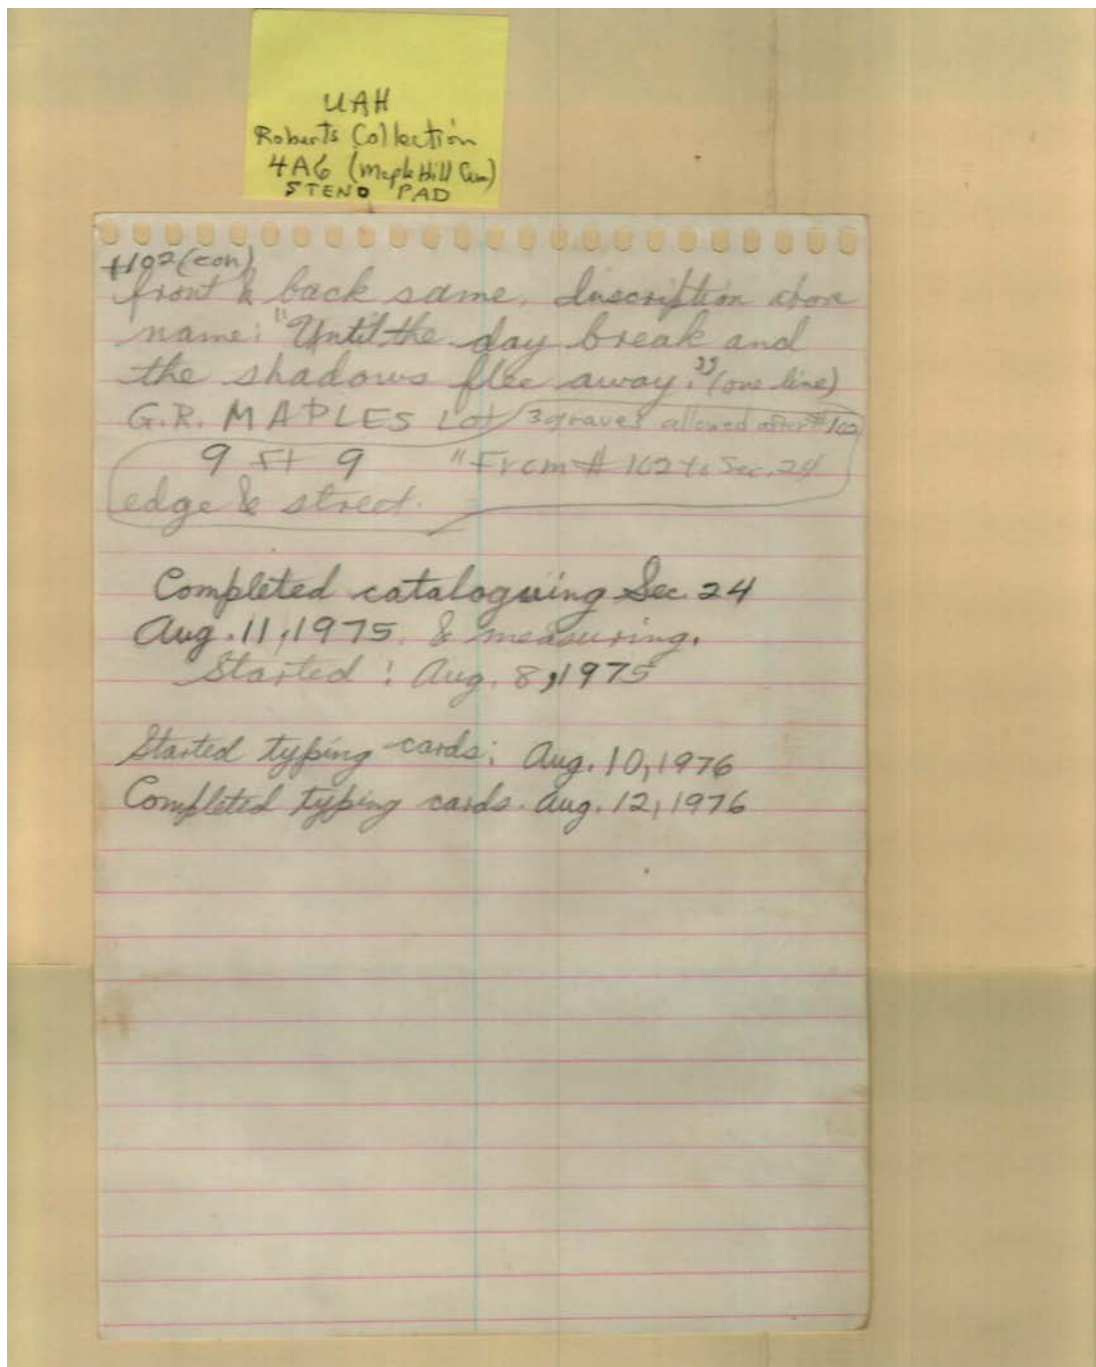 UAH
Roberts Collection
4A6 (Maple Hill Cem)
STENO PAD
#102 (con)
front & back same. Inscription above
name: "Until the day break and
the shadows flee away." (one line)
G.R. MAPLES Lot 3 graves allowed after #102
9 ft 9 " From # 102 to Sec. 24
edge & street.
Completed cataloguing Sec. 24
Aug. 11, 1975. & measuring.
Started: Aug. 8, 1975
Started typing cards: Aug. 10, 1976
Completed typing cards. Aug. 12, 1976